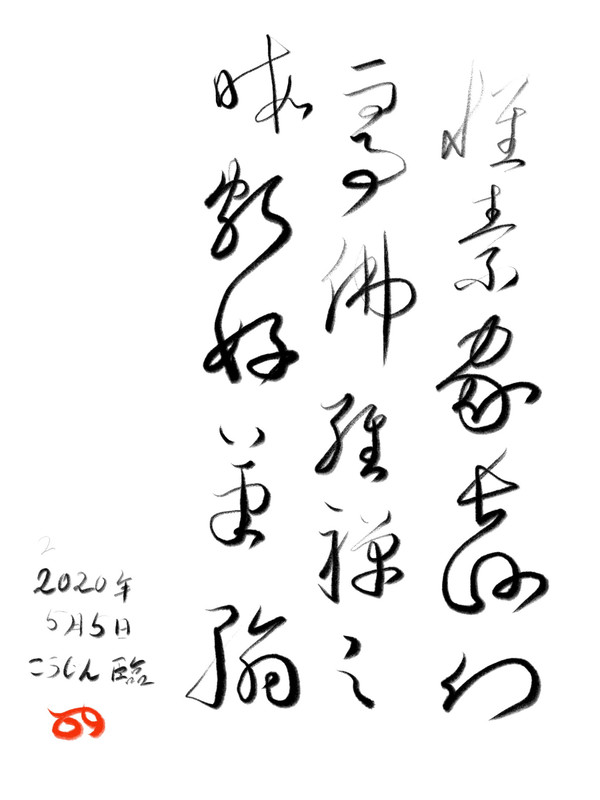 懷素家長沙幼
而事佛經禪之
暇頗好筆翰
2020年
5月5日
こうじん 臨